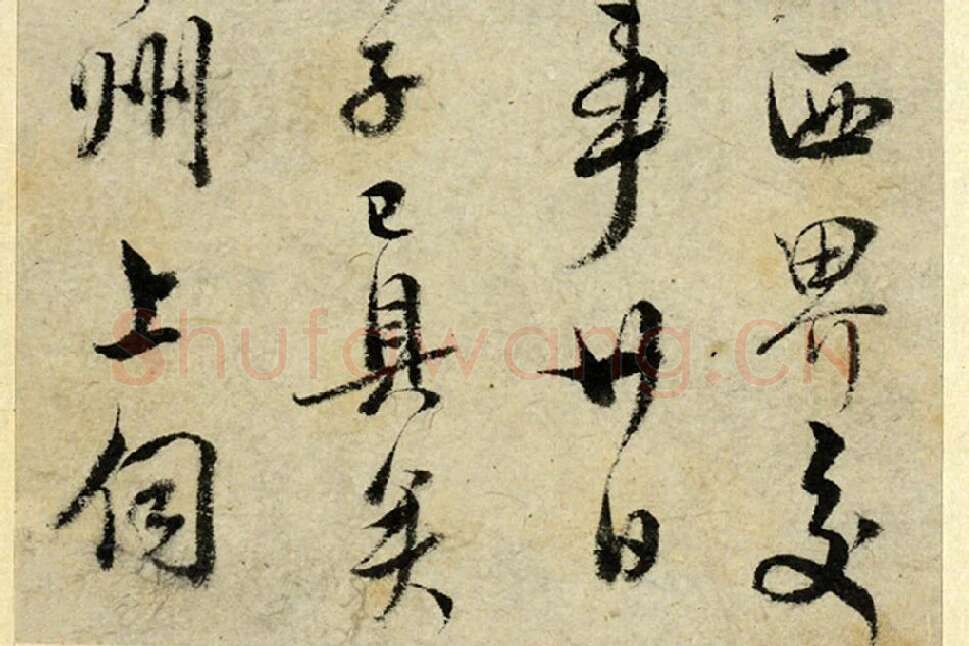 西界交
事廿日
子已具美
州上伺
Shufawang.CN